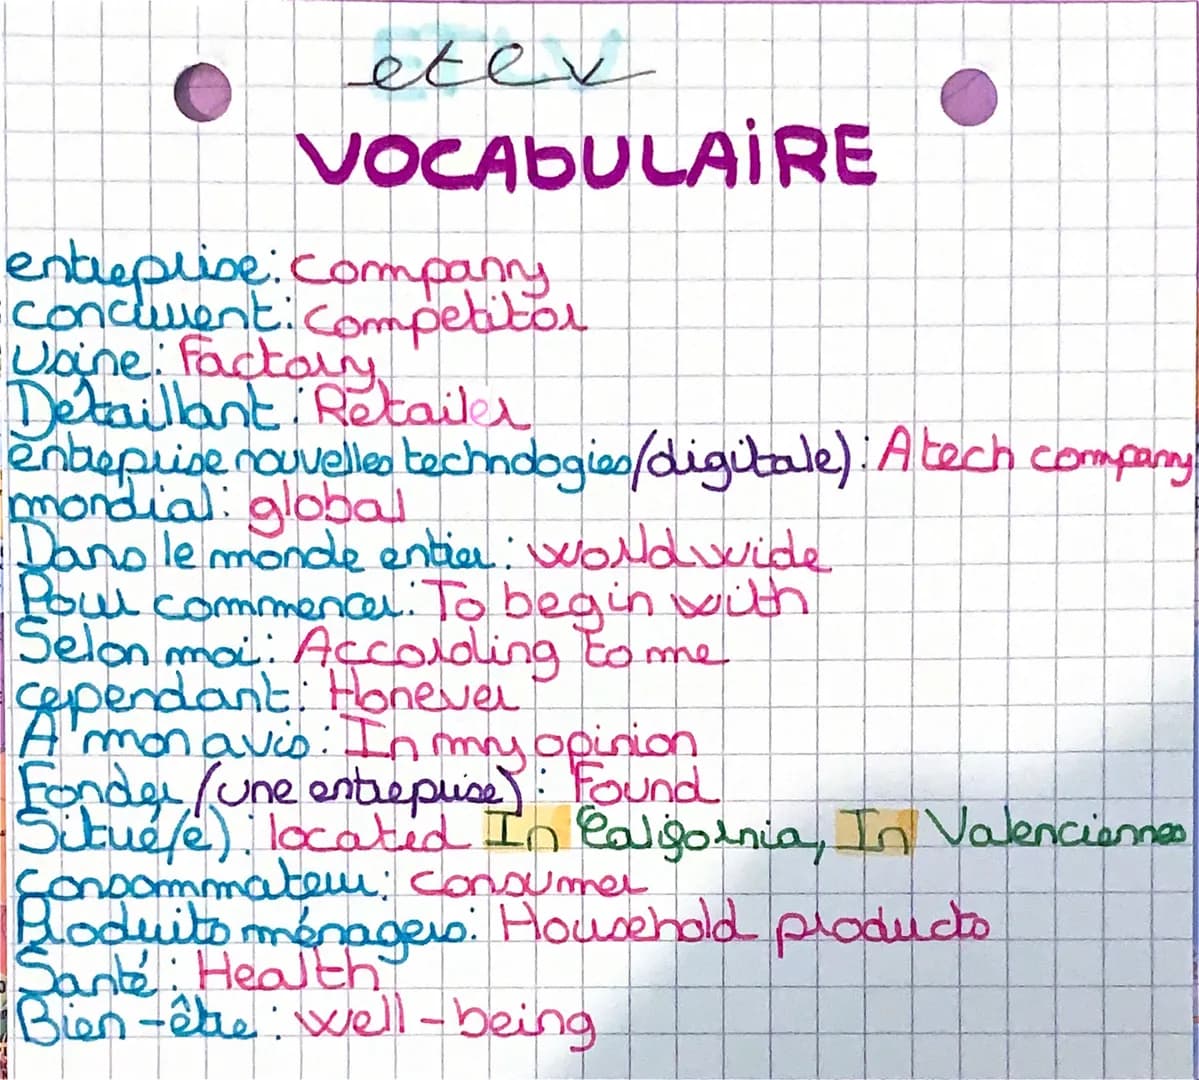 etlv
VOCABULAIRE
entreprise: Company
concurrent: Competitor
Usine: Factory
Détaillant: Retailer
entreprise nouvelles technologies/(digitale): A tech company
mondial: global
Dans le monde entier: worldwide
Pour commencer: To begin with
Selon moi: According to me
cependant: However
A'mon avis: In my opinion
Fonder (une entreprise): Found
Situé(e): located In California, In Valenciennes
Consommateur: consumer
Produits ménagers: Household products
Santé: Health
Bien-être: well-being